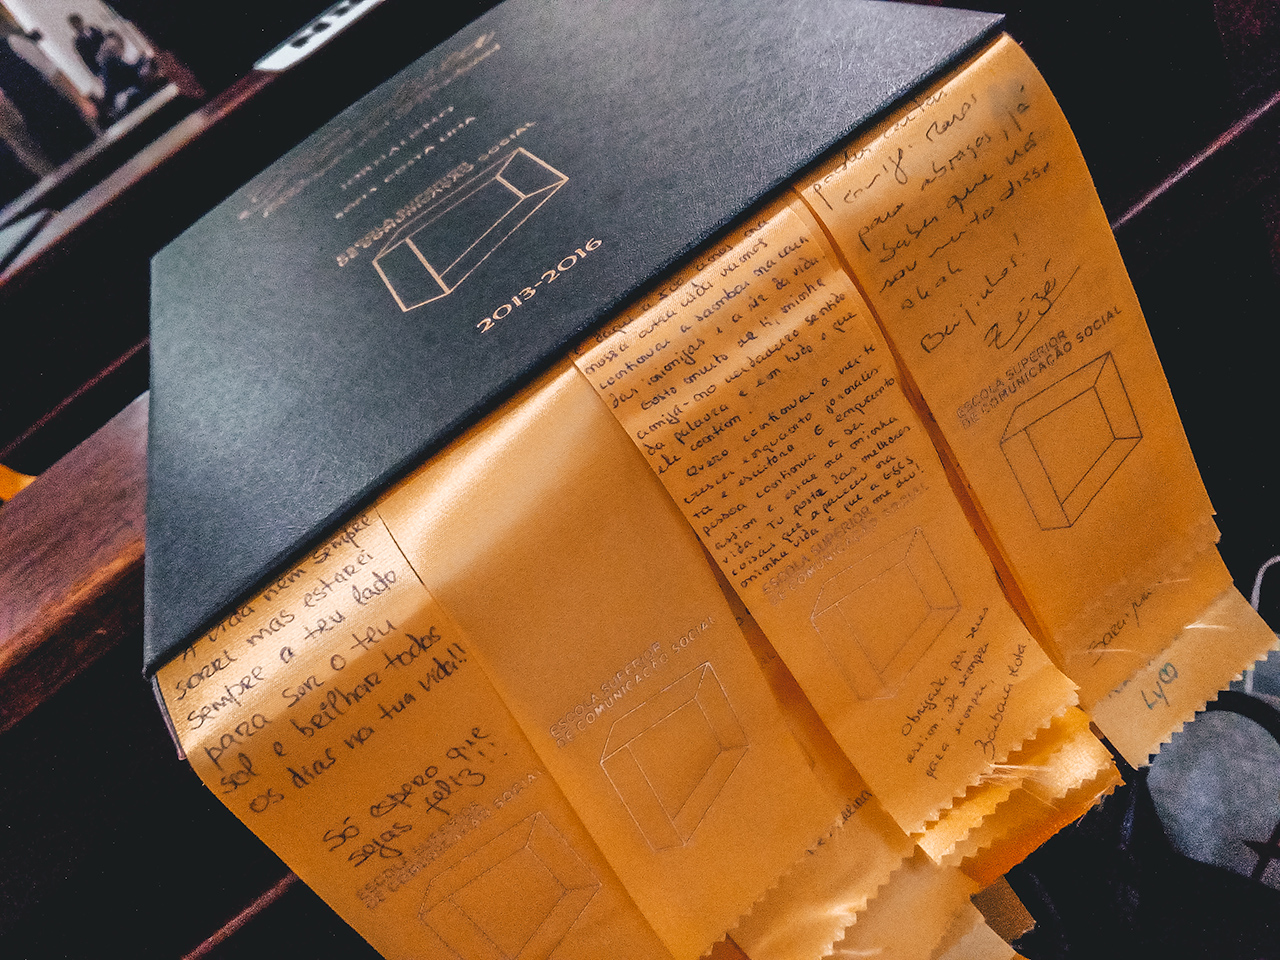 JORNALISMO
ESCOLA SUPERIOR
DE COMUNICAÇÃO SOCIAL
2013-2016
A vida nem sempre
sorri mas estarei
sempre a teu lado
para ser o teu
sol e brilhar todos
os dias na tua vida!!
Só espero que
sejas feliz!!
ESCOLA SUPERIOR
DE COMUNICAÇÃO SOCIAL
ESCOLA SUPERIOR
DE COMUNICAÇÃO SOCIAL
nossa outra vida vamos
continuar a sambar na cara
das inimigas e a rir da vida.
Gosto muito de ti, minha
amiga-no verdadeiro sentido
da palavra e em tudo o que
ele contém.
Quero continuar a ver-te
crescer enquanto jornalis-
ta e escritora. E enquanto
pessoa continua a ser
assim e estar na minha
vida. Tu foste das melhores
coisas que apareceu na
minha vida e que a ESCS
me deu!
ESCOLA SUPERIOR
DE COMUNICAÇÃO SOCIAL
Obrigada por seres
assim, de sempre
para sempre,
Bárbara
comigo.
para abraços, já
sabes que não
sou muito disso
ahah
Beijinhos!
Zézé
ESCOLA SUPERIOR
DE COMUNICAÇÃO SOCIAL